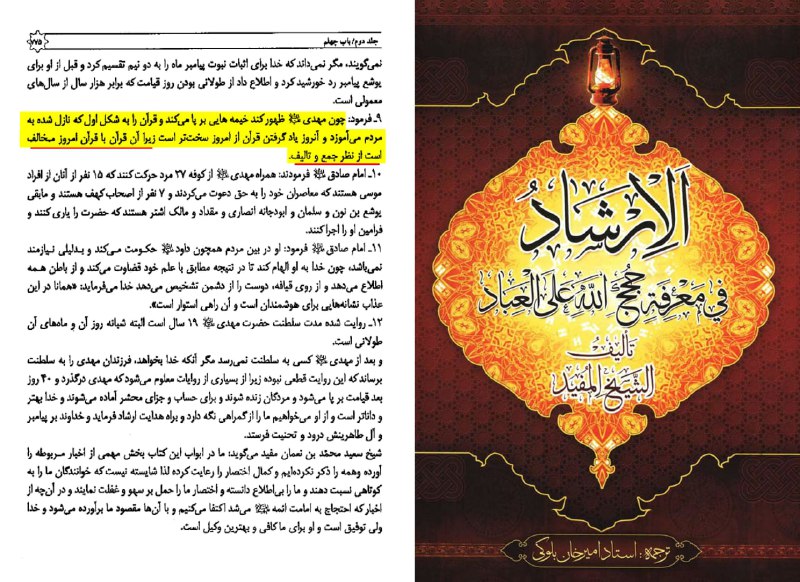 جلد دوم/ باب چهلم
۷۷۵
نمی‌گویند، مگر نمی‌داند که خدا برای اثبات نبوت پیامبر ماه را به دو نیم تقسیم کرد و قبل از او برای
یوشع پیامبر رد خورشید کرد و اطلاع داد از طولانی بودن روز قیامت که برابر هزار سال از سال‌های
معمولی است.
۹ـ فرمود: چون مهدی ﷺ ظهور کند خیمه هایی بر پا می‌کند و قرآن را به شکل اول که نازل شده به
مردم می‌آموزد و آنروز یاد گرفتن قرآن از امروز سخت‌تر است زیرا آن قرآن با قرآن امروز مخالف
است از نظر جمع و تالیف.
۱۰ـ امام صادق ﷺ فرمودند: همراه مهدی ﷺ از کوفه ۲۷ مرد حرکت کنند که ۱۵ نفر از آنان از افراد
موسی هستند که معاصران خود را به حق دعوت می‌کردند و ۷ نفر از اصحاب کهف هستند و مابقی
یوشع بن نون و سلمان و ابودجانه انصاری و مقداد و مالک اشتر هستند که حضرت را یاری کنند و
فرامین او را اجرا کنند.
۱۱ـ امام صادق ﷺ فرمود: او در بین مردم همچون داود ﷺ حکومت می‌کند و بدلیلی نیازمند
نمی‌باشد، چون خدا به او الهام کند تا در نتیجه مطابق با علم خود قضاوت می‌کند و از باطن همه
اطلاع می‌دهد و از روی قیافه، دوست را از دشمن تشخیص می‌دهد خدا می‌فرماید: «همانا در این
عذاب نشانه‌هایی برای هوشمندان است و آن راهی استوار است».
۱۲ـ روایت شده مدت سلطنت حضرت مهدی ﷺ ۱۹ سال است البته شبانه روز آن و ماه‌های آن
طولانی است.
و بعد از مهدی ﷺ کسی به سلطنت نمی‌رسد مگر آنکه خدا بخواهد، فرزندان مهدی را به سلطنت
برساند که این روایت قطعی نبوده زیرا از بسیاری از روایات معلوم می‌شود که مهدی درگذرد و ۴۰ روز
بعد قیامت بر پا می‌شود و مردگان زنده شوند و برای حساب و جزای محشر آماده می‌شوند و خدا بهتر
و داناتر است و از او می‌خواهیم ما را از گمراهی نگه دارد و براه هدایت ارشاد فرماید و خداوند بر پیامبر
و آل طاهرینش درود و تحنیت فرستد.
شیخ سعید محمّد بن نعمان مفید می‌گوید: ما در ابواب این کتاب بخش مهمی از اخبار مربوطه را
آورده وهمه را ذکر نکرده‌ایم و کمال اختصار را رعایت کرده لذا شایسته نیست که خوانندگان ما را به
کوتاهی نسبت دهند و ما را بی‌اطلاع دانسته و اختصار ما را حمل بر سهو و غفلت نمایند و در آن‌چه از
اخبار که احتجاج به امامت ائمه ﷺ می‌شد اکتفا می‌کنیم و با آن‌ها مقصود ما برآورده می‌شود و خدا
ولی توفیق است و او برای ما کافی و بهترین وکیل است.
اَلاِرشَادُ
في مَعْرِفَةِ حُجَجِ اللهِ عَلَى العِبَاد
تَأليف
الشَّيخ المُفيد
ترجمه: استاد امیرخان بلوکی